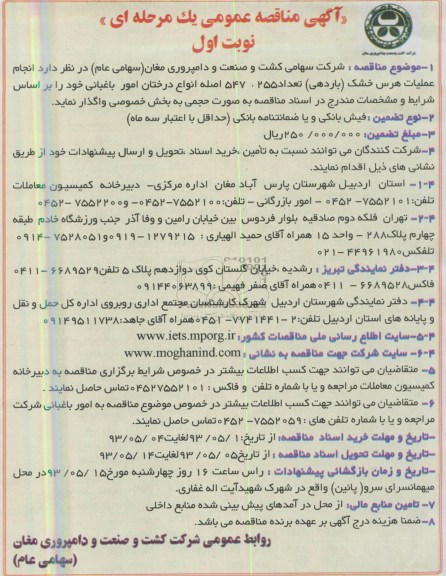 «آگهی مناقصه عمومی یك مرحله ای »
نوبت اول
شرکت کشت و صنعت و دامپروری مغان
۱-موضوع مناقصه : شرکت سهامی کشت و صنعت و دامپروری مغان(سهامی عام) در نظر دارد انجام
عملیات هرس خشک (باردهی) تعداد۲۵۵ . ۵۴۷ اصله انواع درختان امور باغبانی خود را بر اساس
شرایط و مشخصات مندرج در اسناد مناقصه به صورت حجمی به بخش خصوصی واگذار نماید.
۲-نوع تضمین :فیش بانکی و یا ضمانتنامه بانکی (حداقل با اعتبار سه ماه)
۳-مبلغ تضمین: ۰۰۰/۰۰۰/ ۲۵۰ریال
۴-شرکت کنندگان می توانند نسبت به تأمین ،خرید اسناد ،تحویل و ارسال پیشنهادات خود از طریق
نشانی های ذیل اقدام نمایند.
۱-۴- استان اردبیل شهرستان پارس آباد مغان اداره مرکزی- دبیرخانه کمیسیون معاملات
تلفن:۷۵۵۲۱۰۱- ۰۴۵۲ - امور بازرگانی – تلفن:۷۵۵۲۱۰۰-۰۴۵۲ و۷۵۵۲۲۰۰ -۰۴۵۲
۲-۴- تهران فلکه دوم صادقیه بلوار فردوس بین خیابان رامین و وفا آذر جنب ورزشگاه خادم طبقه
چهارم پلاک۲۸۸ - واحد ۱۵ همراه آقای حمید الهیاری : ۱۲۷۹۲۱۵ -۰۹۱۹و۷۵۲۸۰۵۱ -۰۹۱۴
تلفکس۴۴۹۶۱۹۸۰-۰۲۱
۳-۴-دفتر نمایندگی تبریز : رشدیه ،خیابان گلستان کوی دوازدهم پلاک ۵ تلفن۶۶۸۹۵۲۹ -۰۴۱۱
فاکس۶۶۶۹۵۲۸ - ۰۴۱۱همراه آقای صفر فهیمی :۰۹۱۴۴۰۶۳۸۹۹
۴-۴- دفتر نمایندگی شهرستان اردبیل شهرک کارشناسان مجتمع اداری روبروی اداره کل حمل و نقل
و پایانه های استان اردبیل تلفن:۲ -۷۷۴۱۴۴۱- ۰۴۵۱همراه آقای جاهد:۰۹۱۴۹۵۱۱۷۳۸
۵-۴-سایت اطلاع رسانی ملی مناقصات کشور: www.iets.mporg.ir
۶-۴- سایت شرکت جهت مناقصه به نشانی : www.moghanind.com
۵- متقاضیان می توانند جهت کسب اطلاعات بیشتر در خصوص شرایط برگزاری مناقصه به دبیرخانه
کمیسیون معاملات مراجعه و یا با شماره تلفن و فاکس : ۰۴۵۲۷۵۵۲۱۰۱تماس حاصل نمایند .
۶- متقاضیان می توانند جهت کسب اطلاعات بیشتر در خصوص موضوع مناقصه به امور باغبانی شرکت
مراجعه و یا با شماره تلفن های : ۷۵۵۲۰۵۹- ۰۴۵۲تماس حاصل نمایند.
-تاریخ و مهلت خرید اسناد مناقصه: از تاریخ:۰۱ /۹۳/۰۵ لغایت۰۴ /۹۳/۰۵
-تاریخ و مهلت تحویل اسناد مناقصه : از تاریخ۰۵ /۹۳/۰۵ لغایت۱۴ /۹۳/۰۵
-تاریخ و زمان بازگشائی پیشنهادات : راس ساعت ۱۶ روز چهارشنبه مورخ۱۵ /۰۵/ ۹۳در محل
میهمانسرای سرو( پائین) واقع در شهرک شهیدآیت اله غفاری.
۷- تامین منابع مالی: از محل در آمدهای پیش بینی شده منابع داخلی
۸-ضمنا هزینه درج آگهی بر عهده برنده مناقصه می باشد.
روابط عمومی شرکت کشت و صنعت و دامپروری مغان
(سهامی عام)